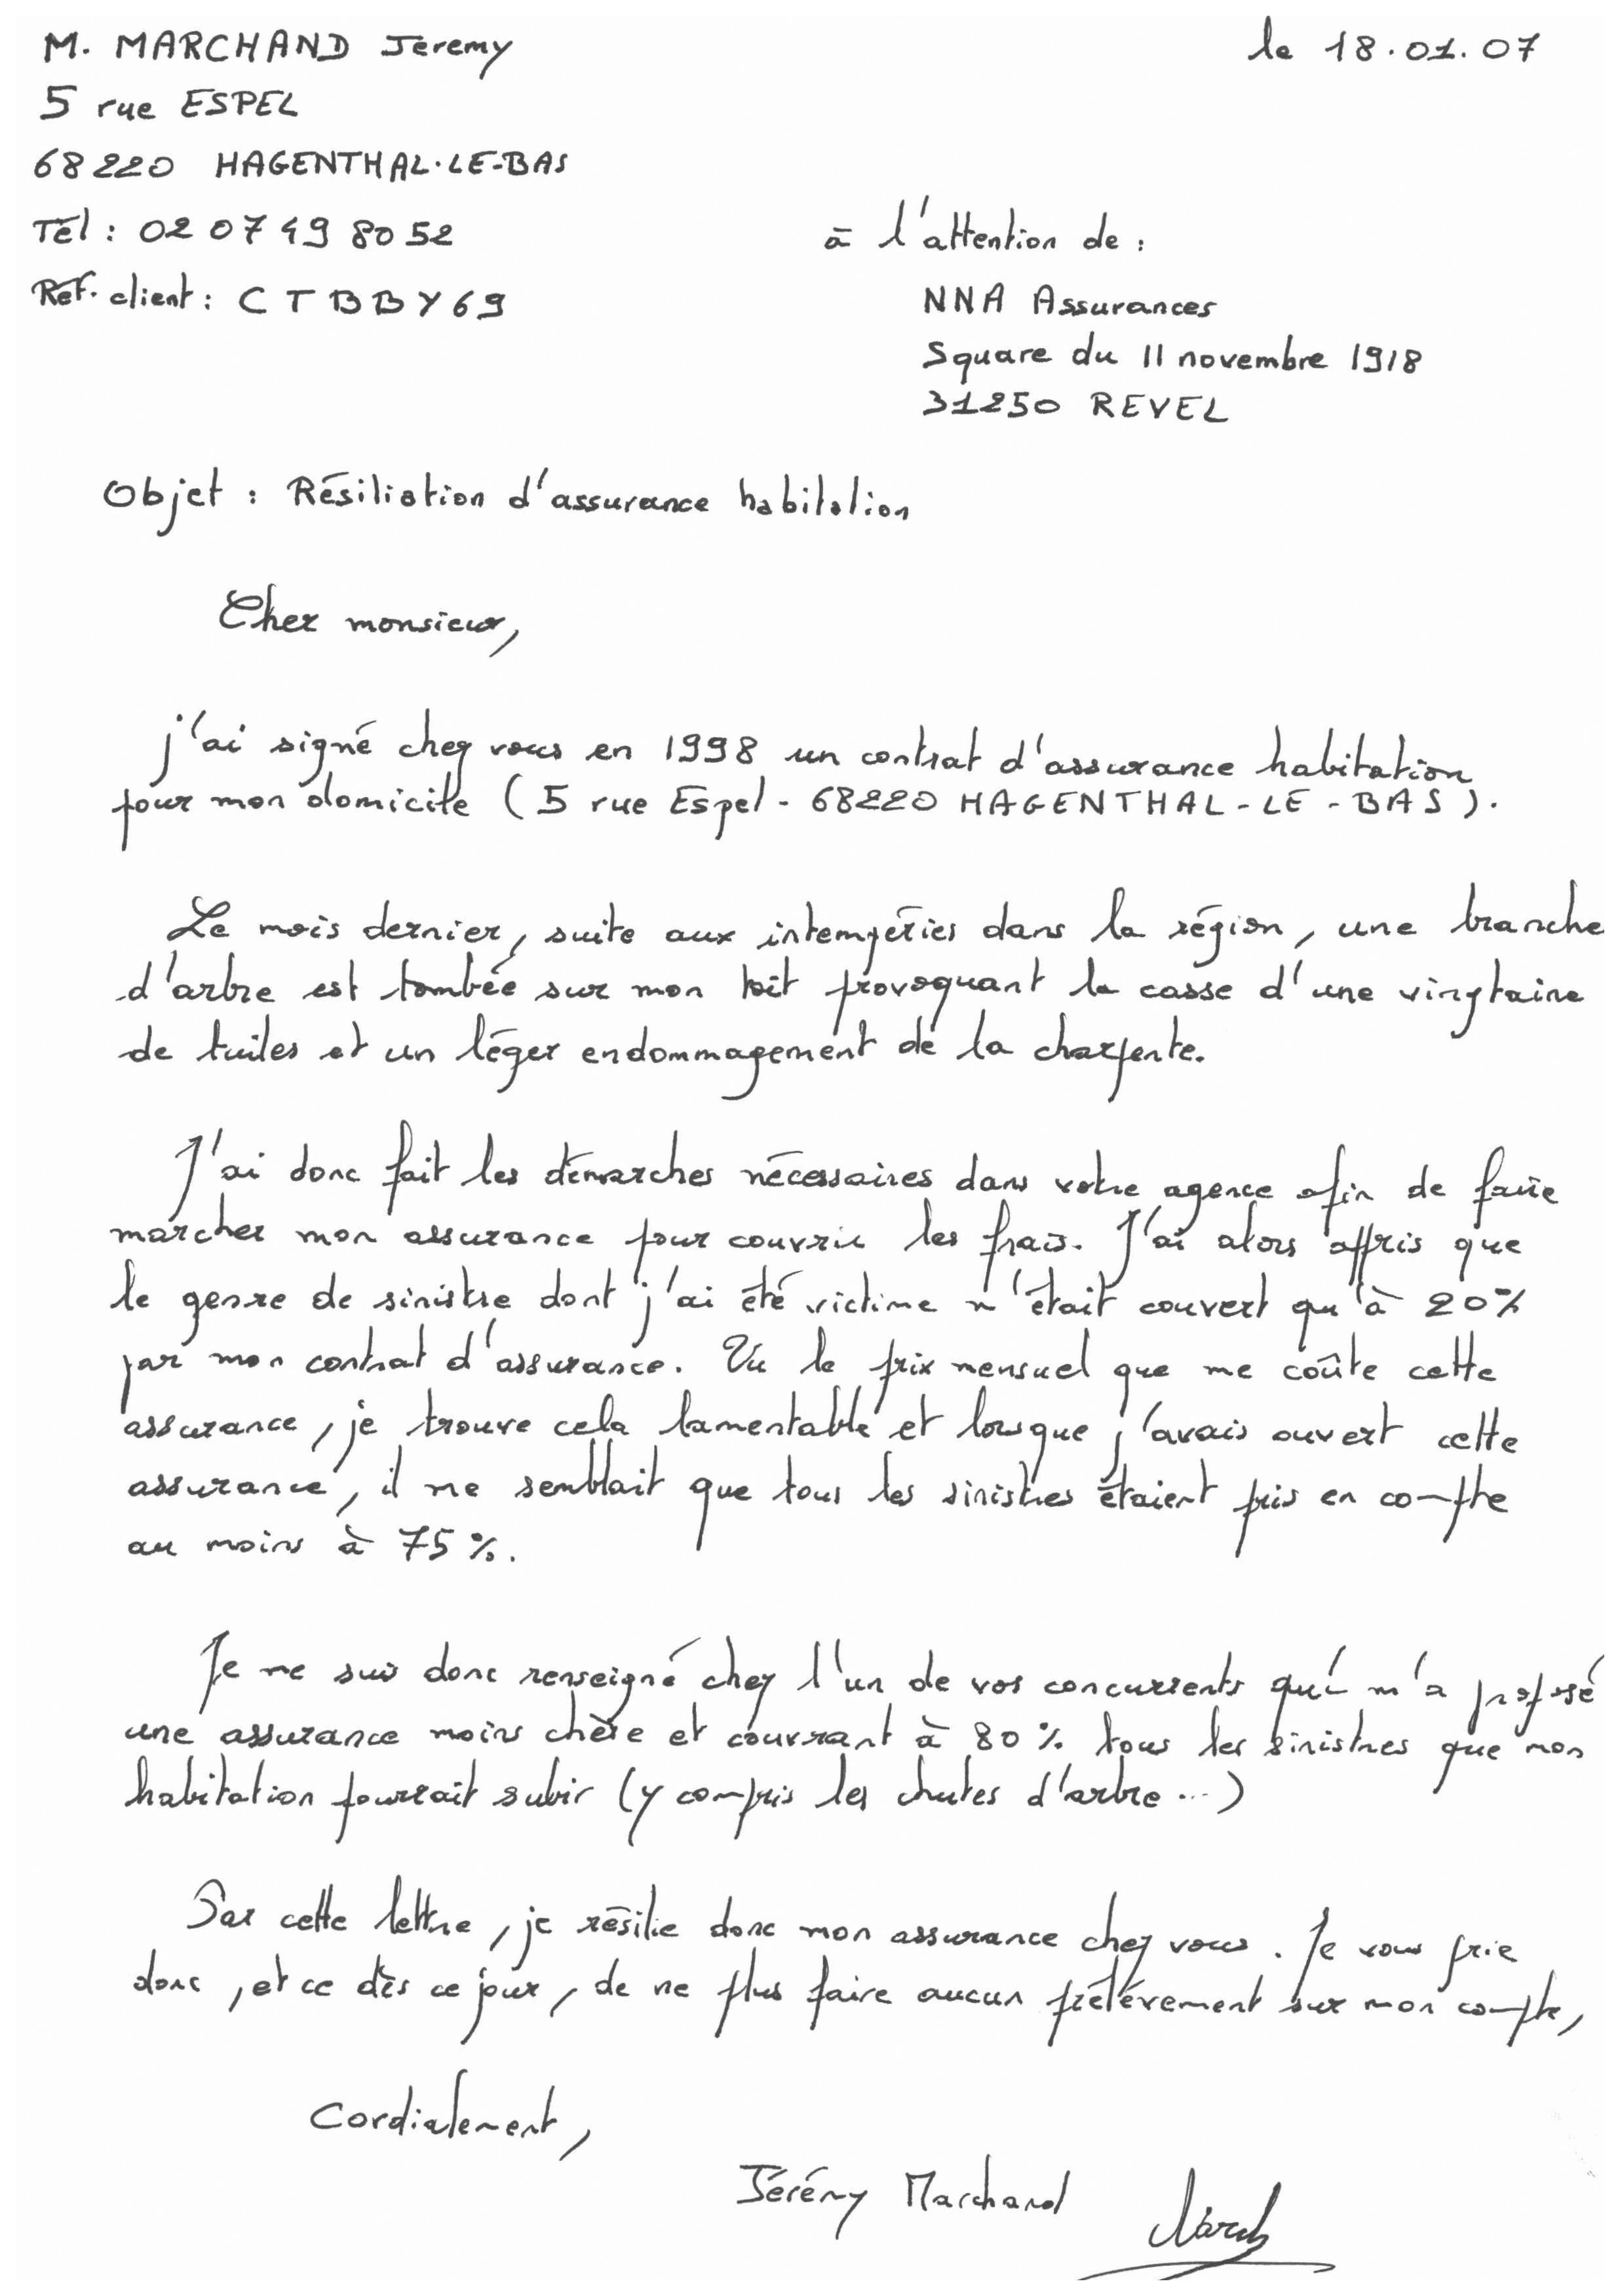 M. MARCHAND Jeremy
le 18.01.07
5 rue ESPEL
68220 HAGENTHAL-LE-BAS
Tél : 02 07 49 80 52
Réf. client : CTBBY69
à l'attention de :
NNA Assurances
Square du 11 novembre 1918
31250 REVEL
Objet : Résiliation d'assurance habitation
Cher monsieur,
j'ai signé chez vous en 1998 un contrat d'assurance habitation
pour mon domicile (5 rue Espel - 68220 HAGENTHAL-LE-BAS).
Le mois dernier, suite aux intempéries dans la région, une branche
d'arbre est tombée sur mon toit provoquant la casse d'une vingtaine
de tuiles et un léger endommagement de la charpente.
J'ai donc fait les démarches nécessaires dans votre agence afin de faire
marcher mon assurance pour couvrir les frais. J'ai alors appris que
le genre de sinistre dont j'ai été victime n'était couvert qu'à 20%
par mon contrat d'assurance. Vu le prix mensuel que me coûte cette
assurance, je trouve cela lamentable et lorsque j'avais ouvert cette
assurance, il me semblait que tous les sinistres étaient pris en compte
au moins à 75%.
Je me suis donc renseigné chez l'un de vos concurrents qui m'a proposé
une assurance moins chère et couvrant à 80% tous les sinistres que mon
habitation pourrait subir (y compris les chutes d'arbre...)
Par cette lettre, je résilie donc mon assurance chez vous. Je vous prie
donc, et ce dès ce jour, de ne plus faire aucun prélèvement sur mon compte,
Cordialement,
Jérémy Marchand